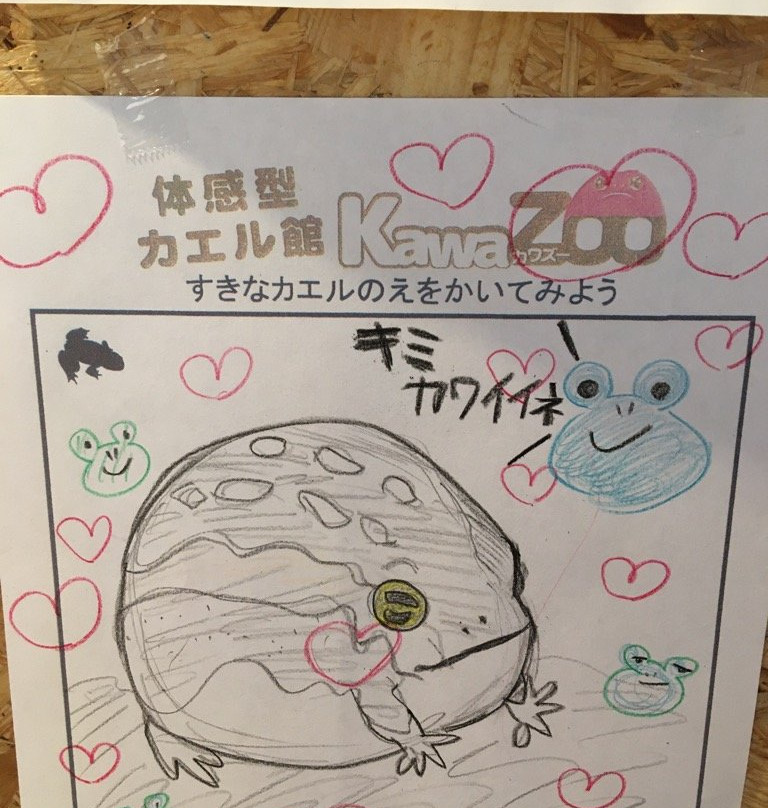 体感型
カエル館 KawaZoo
カワズー
すきなカエルのえをかいてみよう
キミ
カワイイネ